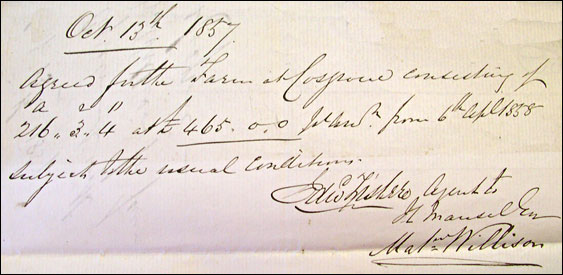 Oct 13th 1857
Agreed for the Farm at Cosgrove consisting of
a r p
216 .. 3 .. 4 at £ 465 . 0 . 0 pr Anm. from 6th Apl 1858
subject to the usual conditions.
Edwd Fisher Agent to
Mansel Esq
Willison